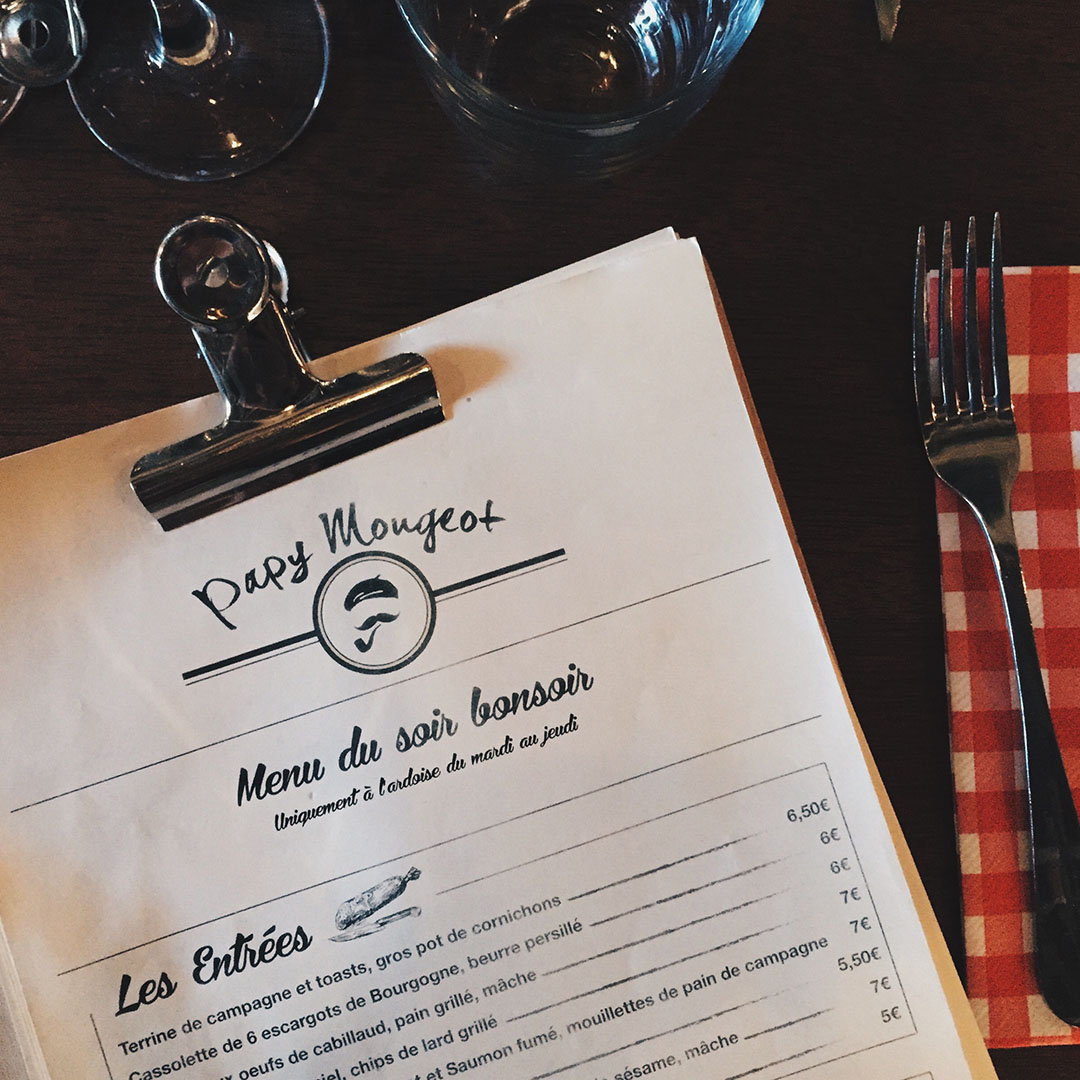 Papy Mougeot
Menu du soir bonsoir
Uniquement à l'ardoise du mardi au jeudi
Les Entrées
Terrine de campagne et toasts, gros pot de cornichons 6,50€
Cassolette de 6 escargots de Bourgogne, beurre persillé 6€
oeufs de cabillaud, pain grillé, mâche 6€
chips de lard grillé 7€
et Saumon fumé, mouillettes de pain de campagne 7€
sésame, mâche 5,50€
7€
5€